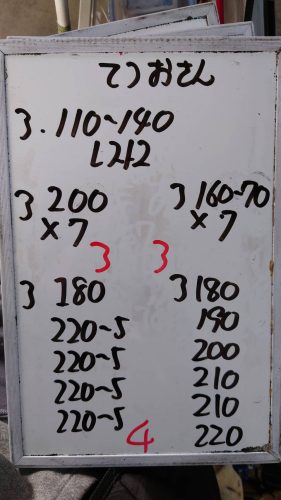 てつおさん
3.110~140
3 200
×7
3
3 160~70
×7
3
3 180
220~5
220~5
220~5
220~5
4
3 180
190
200
210
210
220